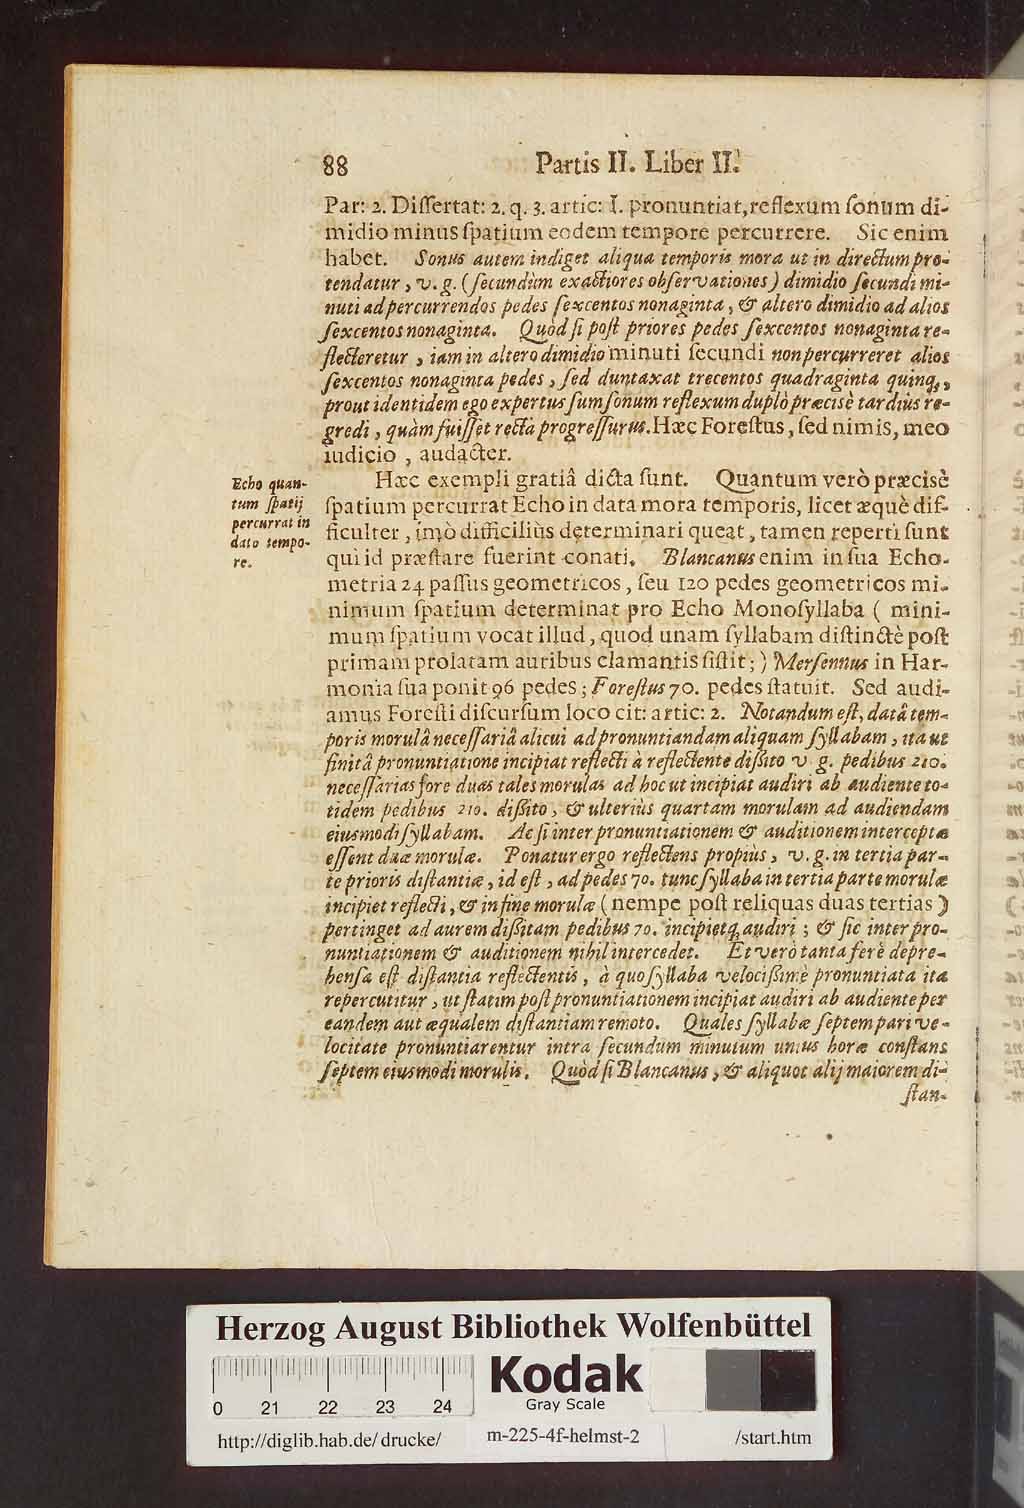 88 Partis II. Liber II.
Par: 2. Diſſertat: 2. q. 3. artic: I. pronuntiat, reflexum ſonum di-
midio minus ſpatium eodem tempore percurrere. Sic enim
habet. Sonus autem indiget aliqua temporis mora ut in directum pro-
tendatur, v. g. (ſecundùm exactiores obſervationes) dimidio ſecundi mi-
nuti ad percurrendos pedes ſexcentos nonaginta, & altero dimidio ad alios
ſexcentos nonaginta. Quòd ſi poſt priores pedes ſexcentos nonaginta re-
flecteretur, iam in altero dimidio minuti ſecundi non percurreret alios
ſexcentos nonaginta pedes, ſed duntaxat trecentos quadraginta quinq;,
prout identidem ego expertus ſum ſonum reflexum duplò præcisè tardiùs re-
gredi, quàm fuiſſet recta progreſſurus. Hæc Foreſtus, ſed nimis, meo
iudicio, audacter.
Echo quan-
tum ſpatij
percurrat in
dato tempo-
re.
Hæc exempli gratiâ dicta ſunt. Quantum verò præcisè
ſpatium percurrat Echo in data mora temporis, licet æquè dif-
ficulter, imò difficiliùs determinari queat, tamen reperti ſunt
qui id præſtare fuerint conati. Blancanus enim in ſua Echo-
metria 24 paſſus geometricos, ſeu 120 pedes geometricos mi-
nimum ſpatium determinat pro Echo Monoſyllaba ( mini-
mum ſpatium vocat illud, quod unam ſyllabam diſtinctè poſt
primam prolatam auribus clamantis ſiſtit; ) Merſennus in Har-
monia ſua ponit 96 pedes; Foreſtus 70. pedes ſtatuit. Sed audi-
amus Foreſti diſcurſum loco cit: artic: 2. Notandum eſt, datâ tem-
poris morulâ neceſſariâ alicui ad pronuntiandam aliquam ſyllabam, ita ut
finitâ pronuntiatione incipiat reflecti à reflectente diſſito v. g. pedibus 210.
neceſſarias fore duas tales morulas ad hoc ut incipiat audiri ab audiente to-
tidem pedibus 210. diſſito, & ulteriùs quartam morulam ad audiendam
eiusmodi ſyllabam. Ac ſi inter pronuntiationem & auditionem interceptæ
eſſent duæ morulæ. Ponatur ergo reflectens propiùs, v. g. in tertia par-
te prioris diſtantiæ, id eſt, ad pedes 70. tunc ſyllaba in tertia parte morulæ
incipiet reflecti, & in fine morulæ (nempe poſt reliquas duas tertias)
pertinget ad aurem diſſitam pedibus 70. incipietq; audiri; & ſic inter pro-
nuntiationem & auditionem nihil intercedet. Et verò tanta ferè depre-
henſa eſt diſtantia reflectentis, à quo ſyllaba velociſſimè pronuntiata ita
repercutitur, ut ſtatim poſt pronuntiationem incipiat audiri ab audiente per
eandem aut æqualem diſtantiam remoto. Quales ſyllabæ ſeptem pari ve-
locitate pronuntiarentur intra ſecundum minutum unius horæ conſtans
ſeptem eiusmodi morulis. Quòd ſi Blancanus, & aliquot alij maiorem di-
ſtan-
Herzog August Bibliothek Wolfenbüttel
0 21 22 23 24
Kodak
Gray Scale
http://diglib.hab.de/drucke/ m-225-4f-helmst-2 /start.htm